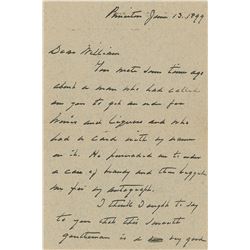 Princeton June 13. 1899
Dear William
Your note some time ago
about a man who had called
on you to get an order for
Wines and Liquors and who
had a card with my name
on it. He persuaded me to order
a case of brandy and then begged
me for my autograph.
I think I ought to say
to you that this smooth
gentleman is a very good